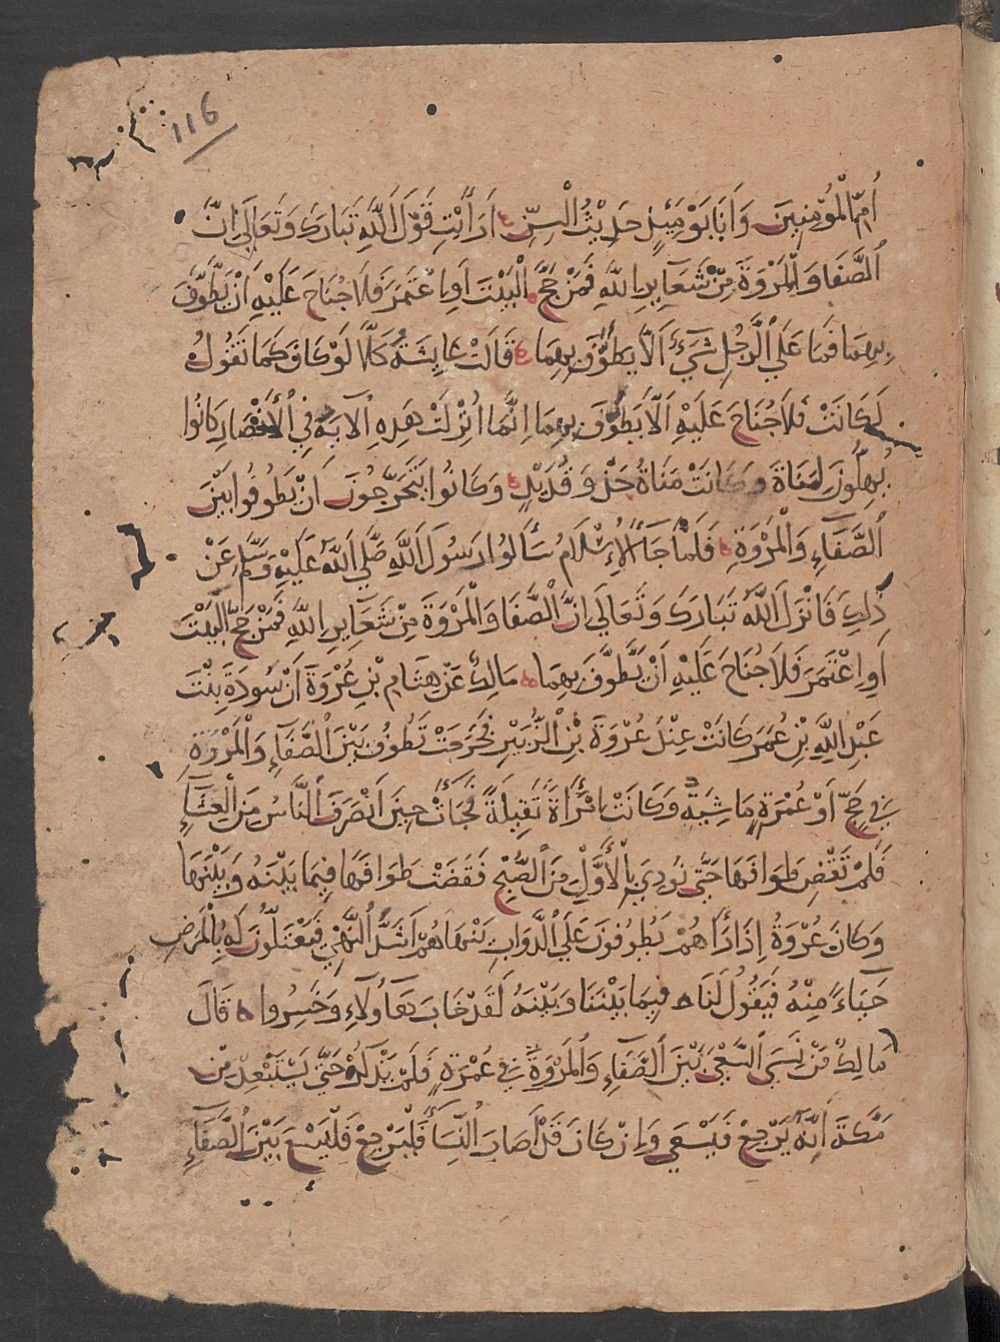 116
أُمِّ الْمُؤْمِنِينَ وَأَنَا يَوْمَئِذٍ حَدِيثُ السِّنِّ أَرَأَيْتِ قَوْلَ اللَّهِ تَبَارَكَ وَتَعَالَى إِنَّ
الصَّفَا وَالْمَرْوَةَ مِنْ شَعَآيِرِ اللَّهِ فَمَنْ حَجَّ الْبَيْتَ أَوِ اعْتَمَرَ فَلَا جُنَاحَ عَلَيْهِ أَنْ يَطَّوَّفَ
بِهِمَا فَمَا عَلَى الرَّجُلِ شَيْءٌ أَلَّا يَطَّوَّفَ بِهِمَا قَالَتْ عَايِشَةُ كَلَّا لَوْ كَانَ كَمَا تَقُولُ
لَكَانَتْ فَلَا جُنَاحَ عَلَيْهِ أَلَّا يَطَّوَّفَ بِهِمَا إِنَّمَا أُنْزِلَتْ هَذِهِ الْآيَةُ فِي الْأَنْصَارِ كَانُوا
يُهِلُّونَ لِمَنَاةَ وَكَانَتْ مَنَاةُ حَذْوَ قُدَيْدٍ وَكَانُوا يَتَحَرَّجُونَ أَنْ يَطُوفُوا بَيْنَ
الصَّفَاءِ وَالْمَرْوَةِ فَلَمَّا جَاءَ الْإِسْلَامُ سَأَلُوا رَسُولَ اللَّهِ صَلَّى اللَّهُ عَلَيْهِ وَسَلَّمَ عَنْ
ذَلِكَ فَأَنْزَلَ اللَّهُ تَبَارَكَ وَتَعَالَى إِنَّ الصَّفَا وَالْمَرْوَةَ مِنْ شَعَآيِرِ اللَّهِ فَمَنْ حَجَّ الْبَيْتَ
أَوِ اعْتَمَرَ فَلَا جُنَاحَ عَلَيْهِ أَنْ يَطَّوَّفَ بِهِمَا مَالِكٌ عَنْ هِشَامِ بْنِ عُرْوَةَ أَنَّ سَوْدَةَ بِنْتَ
عَبْدِ اللَّهِ بْنِ عُمَرَ كَانَتْ عِنْدَ عُرْوَةَ بْنِ الزُّبَيْرِ فَخَرَجَتْ تَطُوفُ بَيْنَ الصَّفَاءِ وَالْمَرْوَةِ
فِي حَجٍّ أَوْ عُمْرَةٍ مَاشِيَةً وَكَانَتْ امْرَأَةً ثَقِيلَةً فَجَاءَتْ حِينَ انْصَرَفَ النَّاسُ مِنَ الْعِشَاءِ
فَلَمْ تَقْضِ طَوَافَهَا حَتَّى نُودِيَ بِالْأَوَّلِ مِنَ الصُّبْحِ فَقَضَتْ طَوَافَهَا فِيمَا بَيْنَهُ وَبَيْنَهَا
وَكَانَ عُرْوَةُ إِذَا رَآهُمْ يَطُوفُونَ عَلَى الدَّوَابِ يَنْهَاهُمْ أَشَدَّ النَّهْيِ فَيَعْتَلُّونَ لَهُ بِالْمَرَضِ
حَيَاءً مِنْهُ فَيَقُولُ لَنَا فِيمَا بَيْنَنَا وَبَيْنَهُ لَقَدْ خَابَ هَؤُلَاءِ وَخَسِرُوا قَالَ
مَالِكٌ مَنْ نَسِيَ السَّعْيَ بَيْنَ الصَّفَاءِ وَالْمَرْوَةِ فِي عُمْرَةٍ فَلَمْ يَذْكُرْهُ حَتَّى يَسْتَبْعِدَ مِنْ
مَكَّةَ إِنَّهُ يَرْجِعْ فَيَسْعَى وَإِنْ كَانَ قَدْ أَصَابَ النِّسَاءَ فَلْيَرْجِعْ فَلْيَسْعَ بَيْنَ الصَّفَاءِ